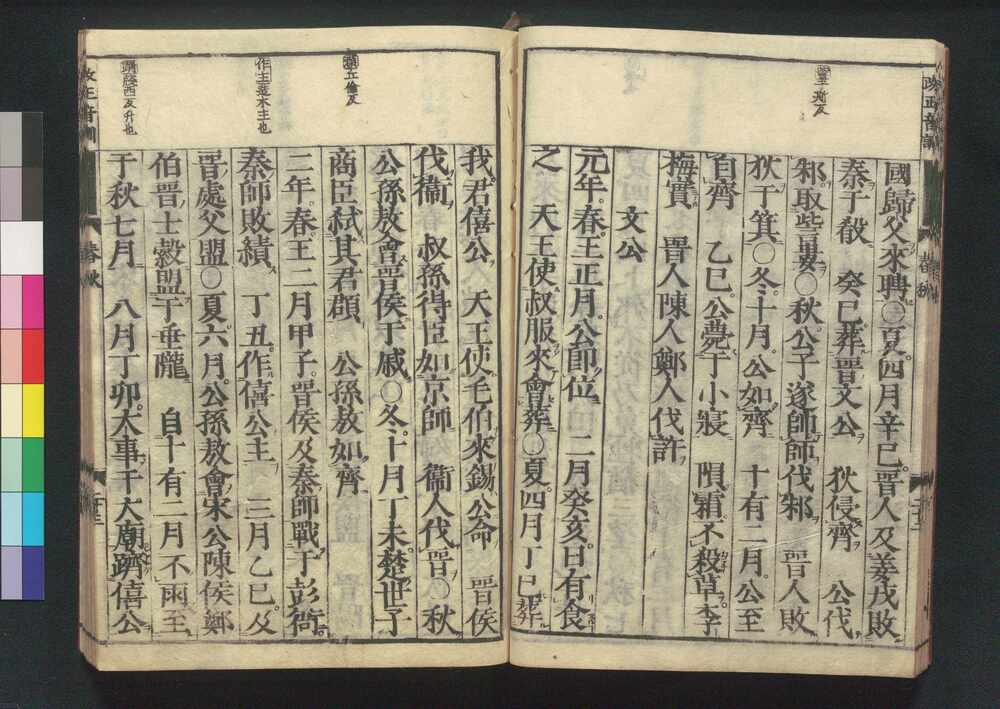 改正音訓
春秋
二十三
國歸父來聘○夏四月辛巳晋人及姜戎敗
秦于殽　癸巳葬晋文公　狄侵齊　公伐
邾取訾婁○秋公子遂帥師伐邾　晋人敗
狄于箕○冬十月公如齊　十有二月公至
自齊　乙巳公薨于小寢　隕霜不殺草李
梅實　晋人陳人鄭人伐許
文公
元年春王正月公即位　二月癸亥日有食
之　天王使叔服來會葬○夏四月丁巳葬
我君僖公　天王使毛伯來錫公命　晋侯
伐衞　叔孫得臣如京師　衞人伐晋○秋
公孫敖會晋侯于戚○冬十月丁未楚世子
商臣弑其君頵　公孫敖如齊
二年春王二月甲子晋侯及秦師戰于彭衙
秦師敗績　丁丑作僖公主　三月乙巳及
晋處父盟○夏六月公孫敖會宋公陳侯鄭
伯晋士縠盟于垂隴　自十有二月不雨至
于秋七月　八月丁卯大事于大廟躋僖公
頵丘倫反
作主造木主也
躋隥西反升也
改正音訓
春秋